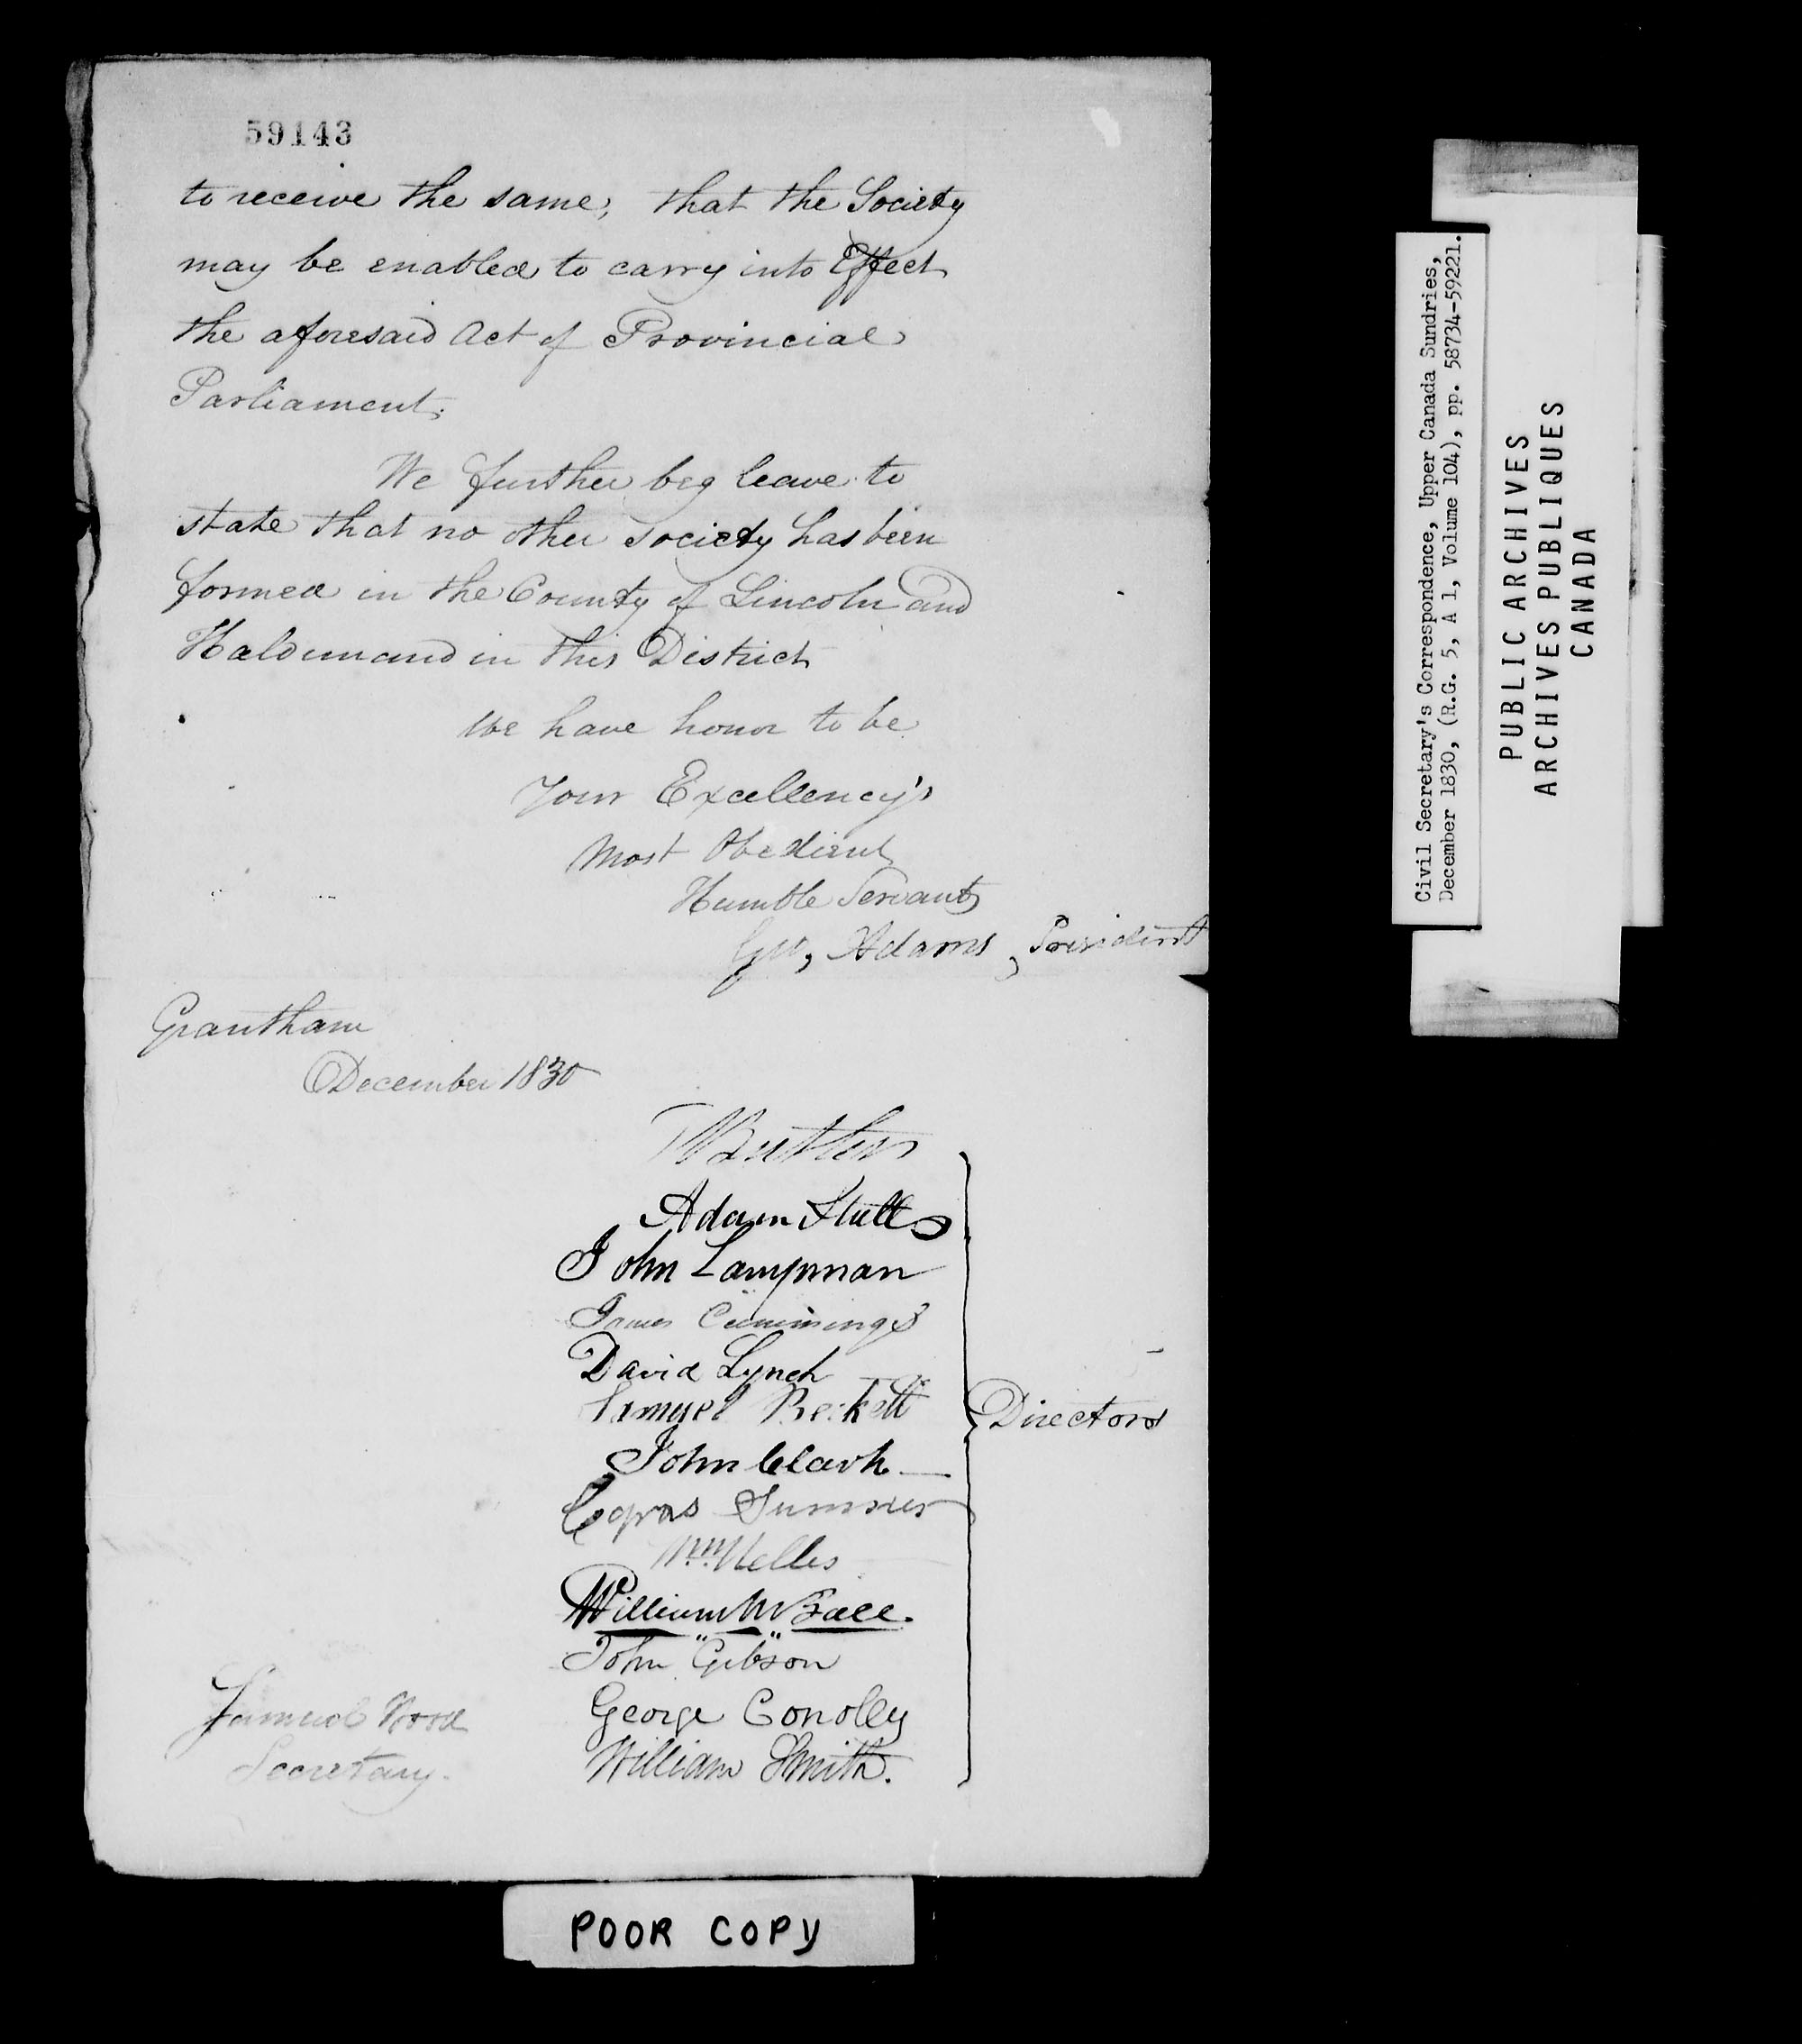 59143
to receive the same; that the Society
may be enabled to carry into Effect
the aforesaid Act of Provincial
Parliament.
We further beg leave to
state that no other society has been
formed in the County of Lincoln and
Haldimand in this District
We have honor to be
Your Excellency's
Most Obedient
Humble Servants
Geo, Adams, President
Grantham
December 1830
Butler
Adam Stull
John Lampman
James Cummings
David Lynch
Samuel Beckett
John Clark
Cyrus Sumner
Wm Nelles
William M Ball.
John Gibson
George Conolly
William Smith.
Directors
Samuel Wood
Secretary.
POOR COPY
Civil Secretary's Correspondence, Upper Canada Sundries,
December 1830, (R.G. 5, A 1, Volume 104), pp. 58734-59221.
PUBLIC ARCHIVES
ARCHIVES PUBLIQUES
CANADA